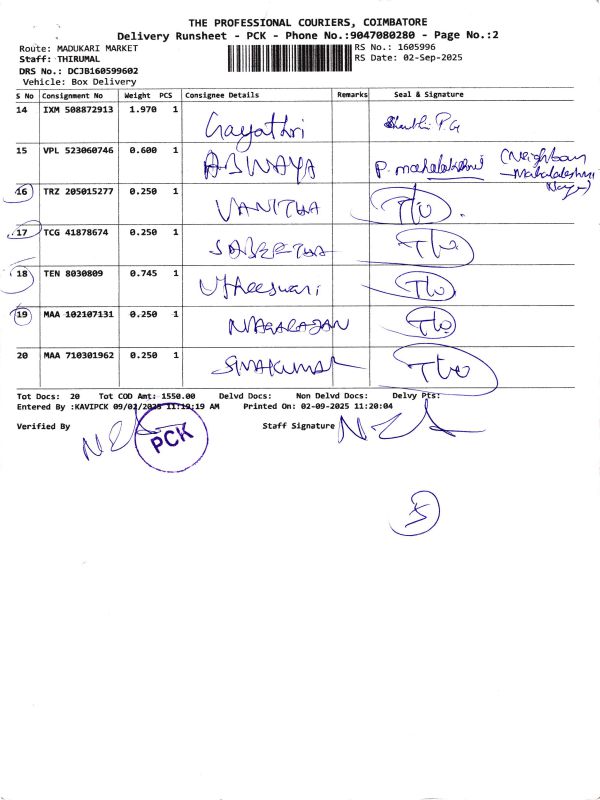 THE PROFESSIONAL COURIERS, COIMBATORE
Delivery Runsheet - PCK - Phone No.:9047080280 - Page No.:2
Route: MADUKARI MARKET
RS No.: 1605996
Staff: THIRUMAL
RS Date: 02-Sep-2025
DRS No.: DCJB160599602
Vehicle: Box Delivery
S No Consignment No Weight PCS Consignee Details Remarks Seal & Signature
14 IXM 508872913 1.970 1 Gayathri
15 VPL 523060746 0.600 1 ABWAYA P. mahalakshmi (Neighbour
16 TRZ 205015277 0.250 1 VANITHA
17 TCG 41878674 0.250 1 SABEETHA
18 TEN 8030809 0.745 1
19 MAA 102107131 0.250 1 NAGARAJAN
20 MAA 710301962 0.250 1 SIVAKUMAR
Tot Docs: 20 Tot COD Amt: 1550.00 Delvd Docs: Non Delvd Docs: Delvy Pts:
Entered By :KAVIPCK 09/02/2025 11:19:19 AM Printed On: 02-09-2025 11:20:04
Verified By Staff Signature
PCK
5